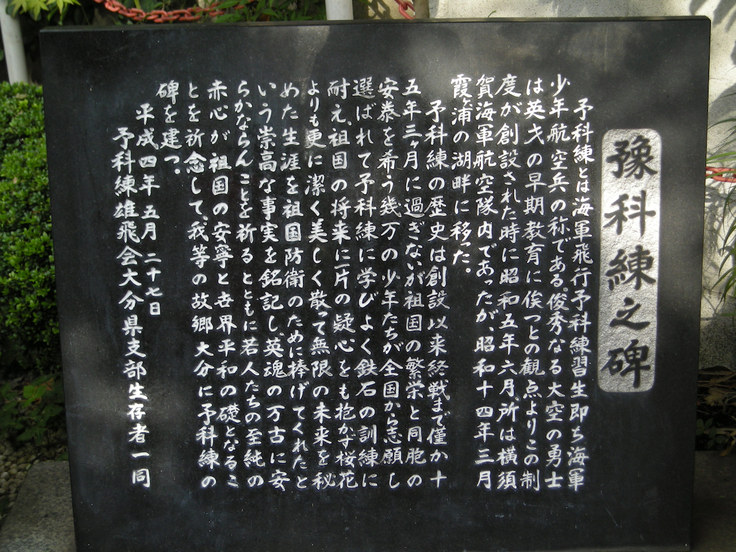 豫科練之碑
予科練とは海軍飛行予科練習生即ち海軍
少年航空兵の称である俊秀なる大空の勇士
は英才の早期教育に俟つとの観点よりこの制
度が創設された時に昭和五年六月所は横須
賀海軍航空隊内であったが、昭和十四年三月
霞ヶ浦の湖畔に移った。
予科練の歴史は創設以来終戦まで僅か十
五年三ヶ月に過ぎないが祖国の繁栄と同胞の
安泰を希う幾万の少年たちが全国から志願し
選ばれて予科練に学びよく鉄石の訓練に
耐え祖国の将来に一片の疑心をも抱かず桜花
よりも更に潔く美しく散って無限の未来を秘
めた生涯を祖国防衛のために捧げてくれたと
いう崇高な事実を銘記し英魂の万古に安
らかならんことを祈るとともに若人たちの至純の
赤心が祖国の安寧と世界平和の礎となるこ
とを祈念して、我等の故郷大分に予科練の
碑を建つ。
平成四年五月二十七日
予科練雄飛会大分県支部生存者一同